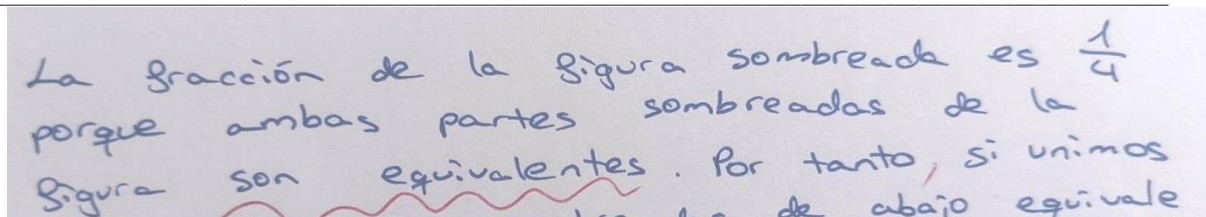 La fracción de la figura sombreada es 1/4
porque ambas partes sombreadas de la
figura son equivalentes. Por tanto, si unimos
de abajo equivale